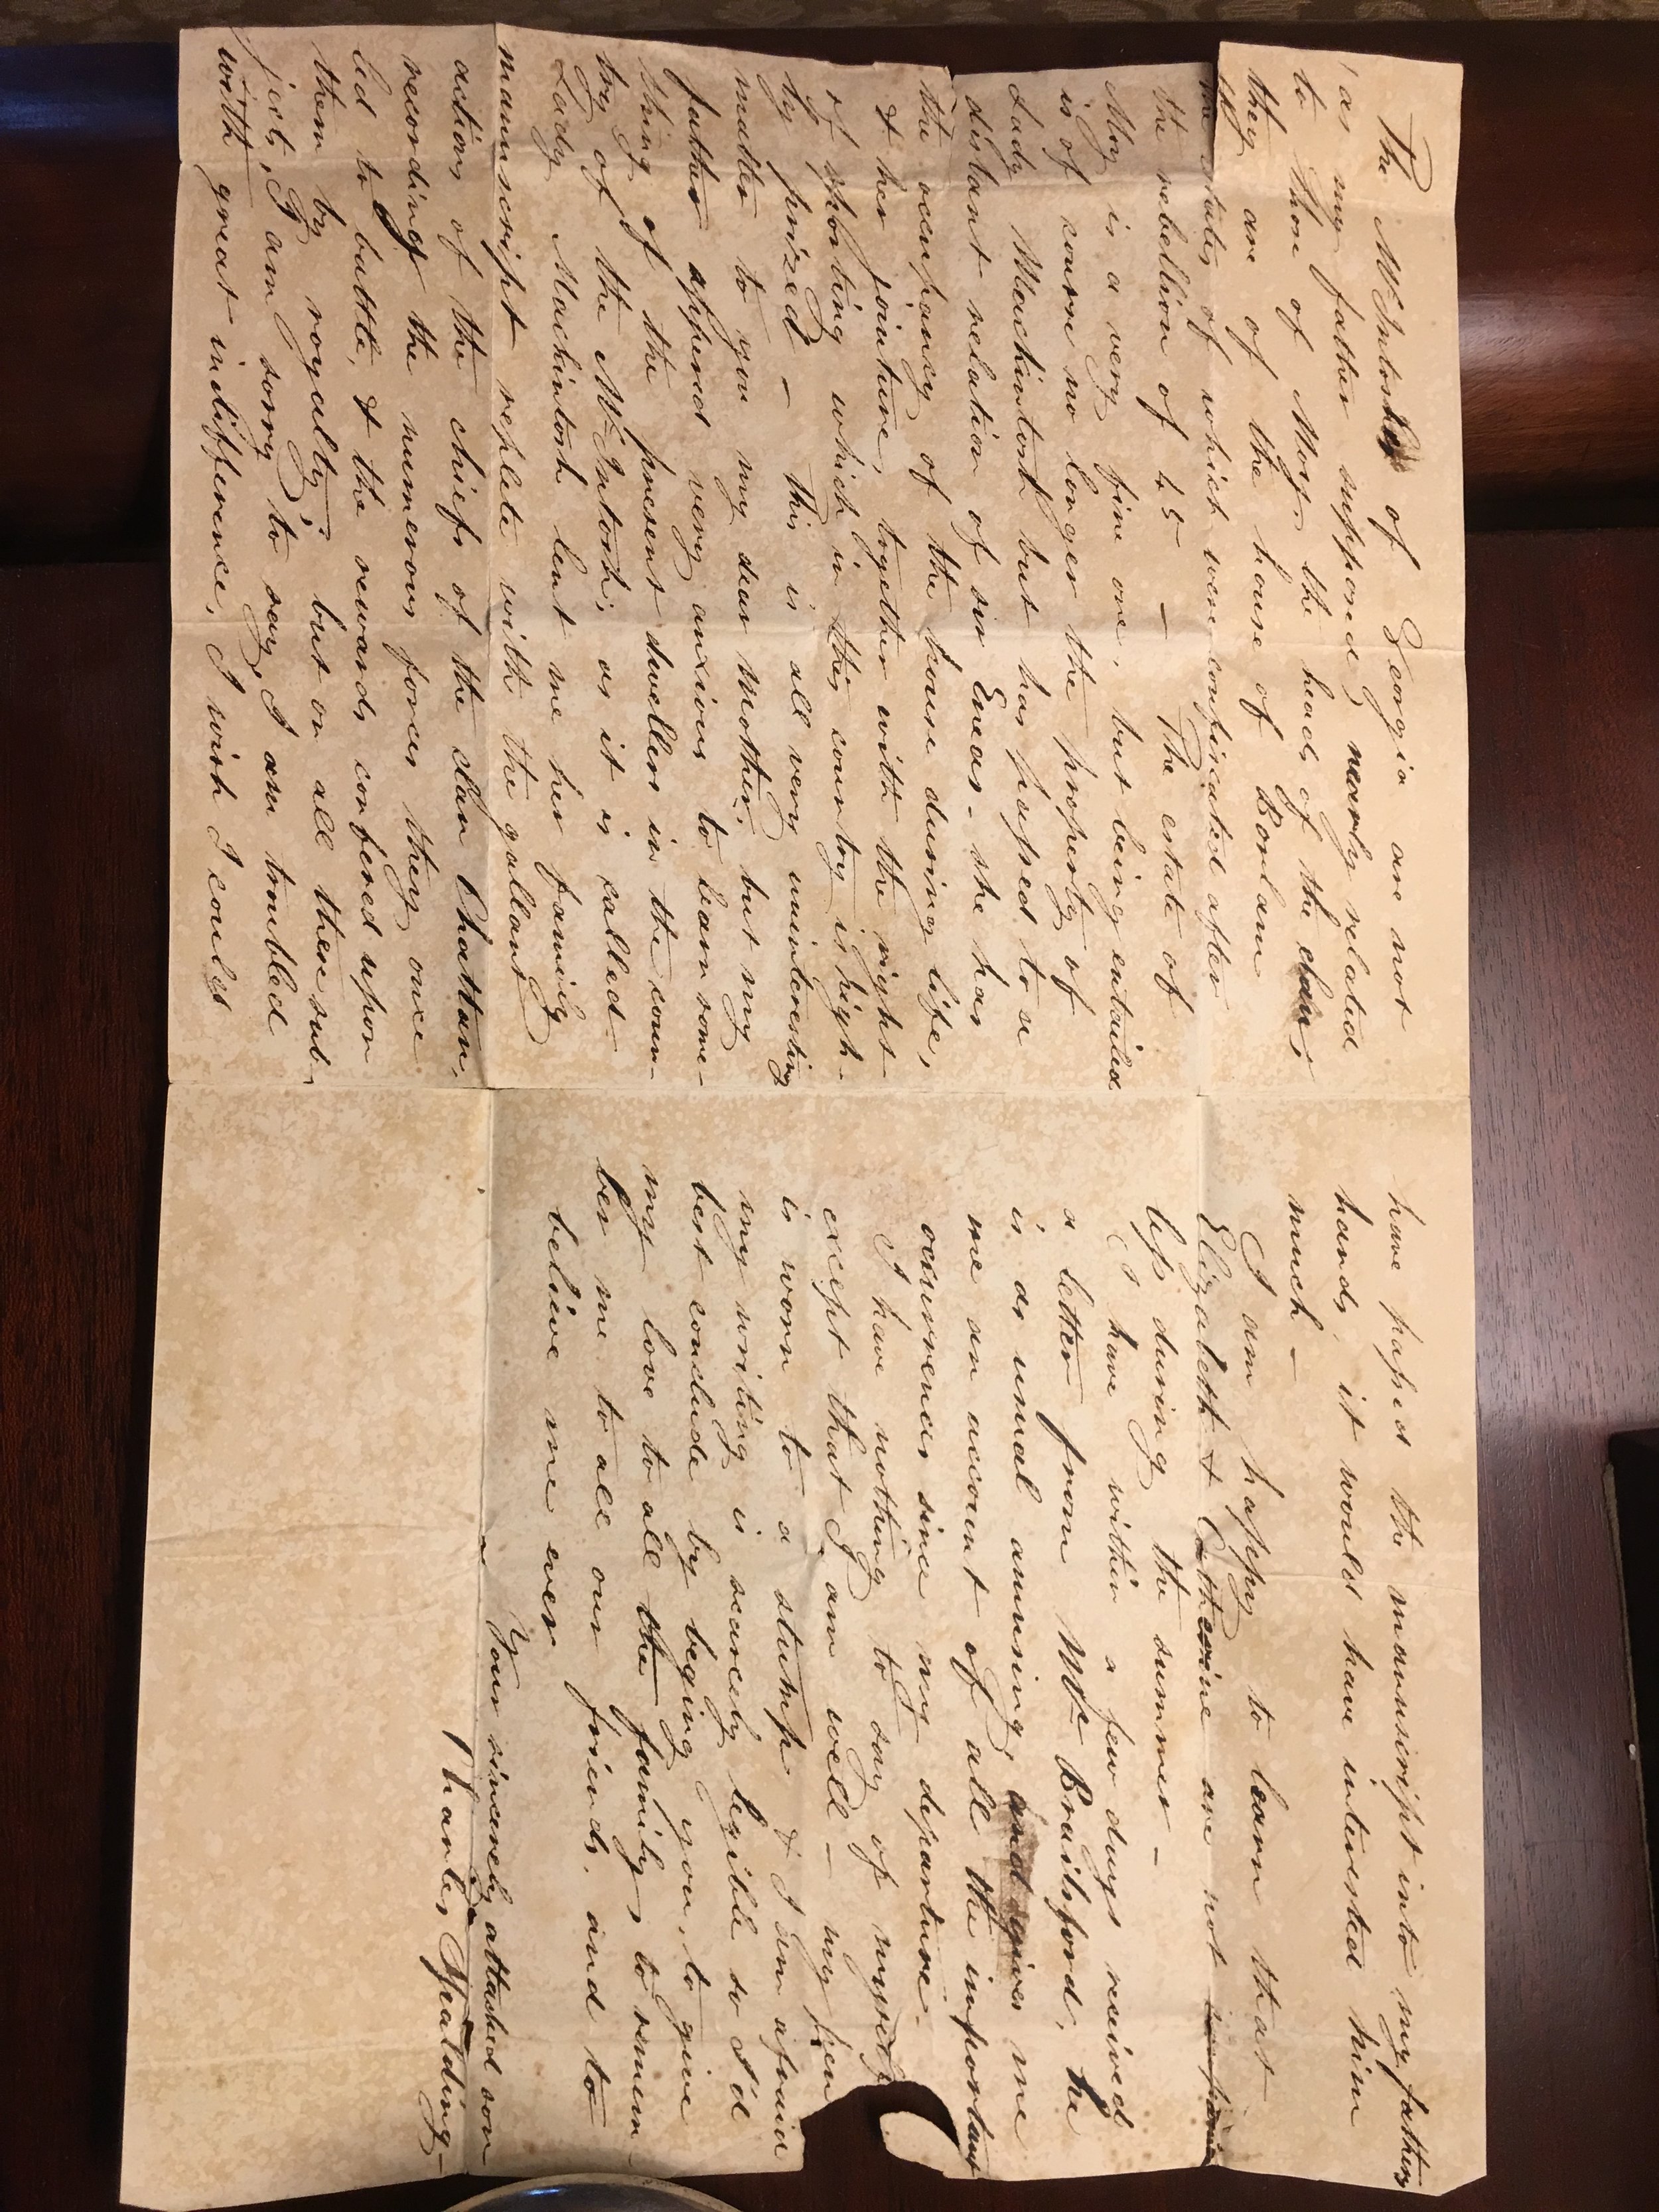 The McIntoshes of Georgia are not
(as my father supposed) nearly related
to thon of Moy, the head of the clan,
they are of the house of Borlam
the estates of which were confiscated after
the rebellion of 45 — The estate of
Moy is a very fine one, but being entailed
is of course no longer the property of
Lady Mackintosh but has passed to a
distant relation of sir Eneas. she has
the occupancy of the house during life,
& her jointure, together with the right
of shooting which in this country is high-
ly prized — This is all very uninteresting
matter to you my dear Mother, but my
father appeared very anxious to learn some-
thing of the present dwellers in the coun-
try of the McIntosh; as it is called —
Lady Mackintosh lent me her family
manuscript replete with the gallant
actions of the chiefs of the clan Chattan,
recording the numerous forces they once
led to battle, & the rewards confered upon
them by royalty; but on all these sub-
jects, I am sorry to say, I am troubled
with great indifference, I wish I could
have passed the manuscript into my fathers
hands, it would have interested him
much —
I am happy to learn that
Elizabeth & Catherine are not
left during the summer —
I have within a few days received
a letter from Mr Brailsford, he
is as usual amusing, and gives me
me an account of all the important
occurrences since my departure.
I have nothing to say of myself
except that I am well — my pen
is worn to a stump & I am afraid
my writing is scarcely legible so I'd
best conclude by beging you, to give
my love to all the family, to remem-
ber me to all our friends, and to
believe me ever
Your sincerely attached son
Charles Spalding —